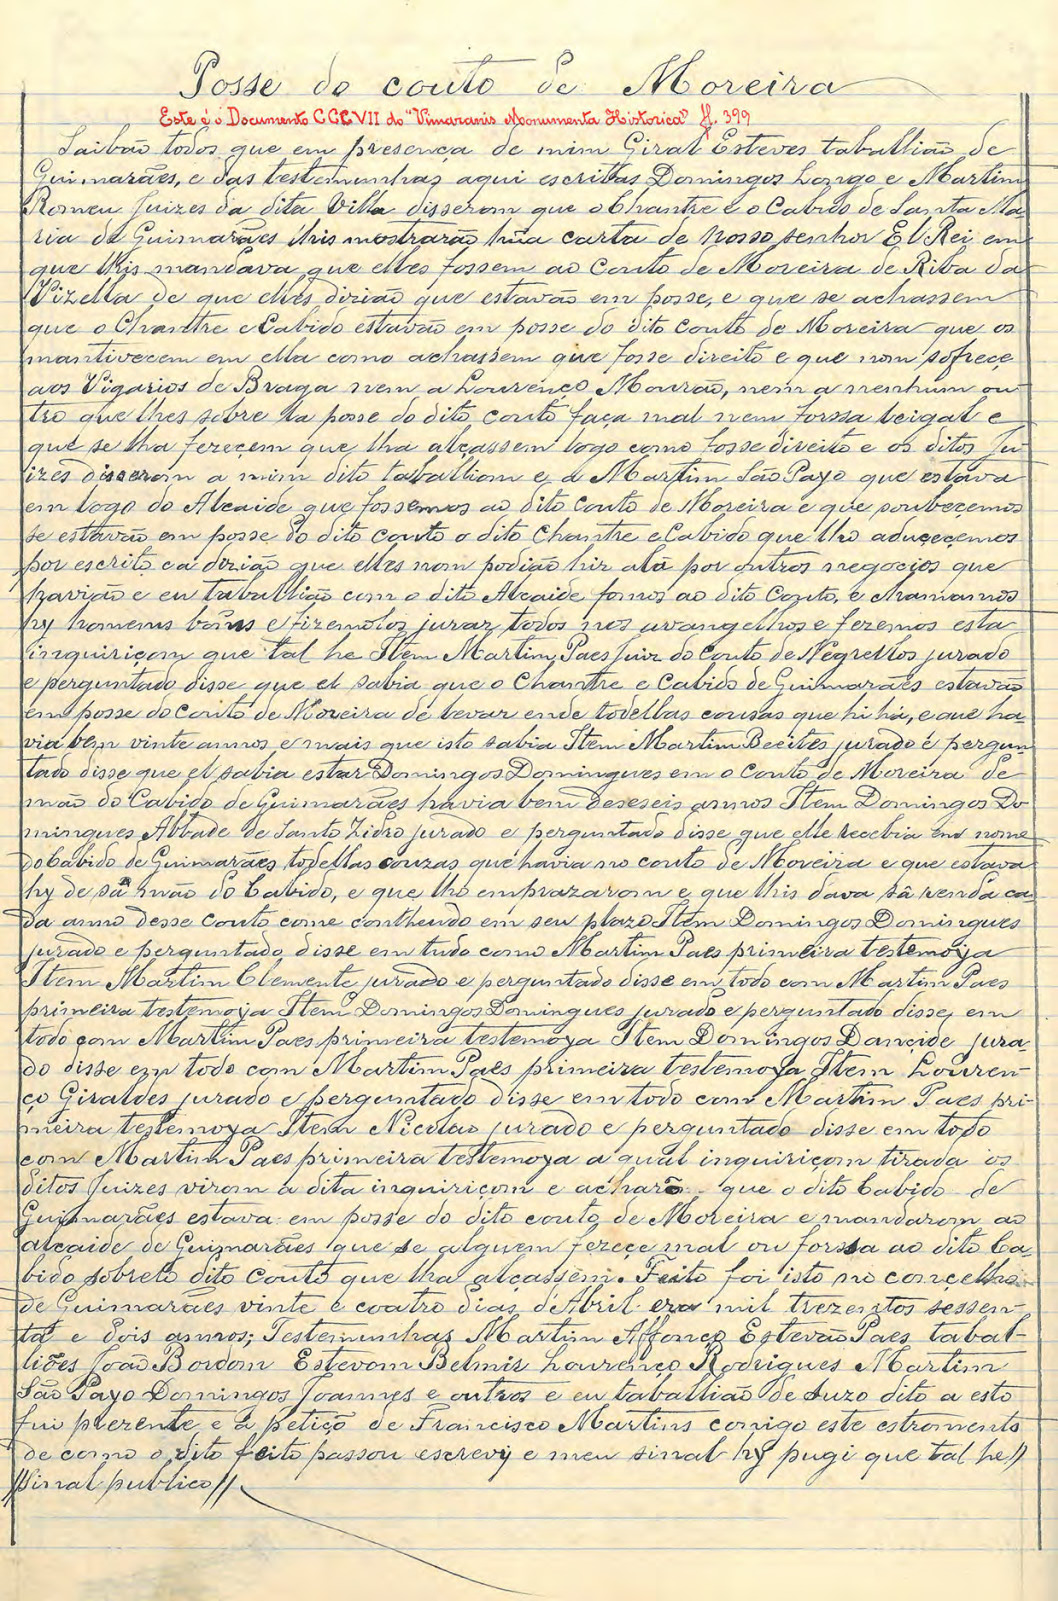 Posse do couto de Moreira
Este é o Documento CCCVII do "Vimaranis Monumenta Historica" fl. 399
Saibão todos que em presença de mim Giral Esteves taballião de
Guimarães, e das testemunhas aqui escritas Domingos Longo e Martim
Romeu Juizes da dita Villa disserom que o Chantre e o Cabido de Santa Ma-
ria de Guimarães lhis mostrarão hũa carta de nosso senhor El Rei em
que lhis mandava que elles fossem ao Couto de Moreira de Riba da
Vizella de que elles dizião que estavão em posse, e que se achassem
que o Chantre e Cabido estavão em posse do dito couto de Moreira que os
mantivecem em ella como achassem que fosse direito e que nom sofreçe
aos Vigarios de Braga nem a Lourenço Mourão, nem a nenhum ou-
tro que lhes sobre la posse do dito couto faça mal nem forssa leigal e
que se lha fereçem que lha alçassem logo como fosse direito e os ditos Ju-
izes disserom a mim dito taballiom e a Martim São Payo que estava
em logo do Alcaide que fossemos ao dito Couto de Moreira e que soubeçemos
se estavão em posse do dito couto o dito Chantre e Cabido que llo aduçeçemos
por escrito ca dizião que elles nom podião hir alá por outros negocios que
havião e eu taballião com o dito Alcaide fomos ao dito Couto, e chamamos
hy homens bõns e fizemolos jurar todos nos avangelhos e fezemos esta
inquiriçom que tal he Item Martim Paes Juiz do Couto de Negrellos jurado
e perguntado disse que el sabia que o Chantre e Cabido de Guimarães estavão
em posse do Couto de Moreira de levar ende todellas cousas que hi há, e que ha-
via bem vinte annos e mais que isto sabia Item Martim Beeites jurado e pergun-
tado disse que el sabia estar Domingos Domingues em o Couto de Moreira de
mão do Cabido de Guimarães havia bem deseseis annos Item Domingos Do-
mingues Abbade de Santo Zidro jurado e perguntado disse que elle recebia em nome
do Cabido de Guimarães todellas couzas que havia no couto de Moreira e que estava
hy de sa mão do Cabido, e que lho emprazarom e que lhis dava sã renda ca-
da anno desse couto come contheudo em seu plazo Item Domingos Domingues
jurado e perguntado disse em tudo como Martim Paes primeira testemoya
Item Martim Clemente jurado e perguntado disse em todo com Martim Paes
primeira testemoya Item Domingos Domingues jurado e perguntado disse em
todo com Martim Paes primeira testemoya Item Domingos Dançide jura-
do disse em todo com Martim Paes primeira testemoya Item Louren-
ço Giraldes jurado e perguntado disse em todo com Martim Paes pri-
meira testemoya Item Nicolao jurado e perguntado disse em todo
com Martim Paes primeira testemoya a qual inquiriçom tirada os
ditos Juizes virom a dita inquiriçom e acharõ que o dito Cabido de
Guimarães estava em posse do dito couto de Moreira e mandarom ao
alcaide de Guimarães que se alguem fereçe mal ou forssa ao dito Ca-
bido sobrelo dito Couto que lha alçassem. Feito foi isto no conçelho
de Guimarães vinte e coatro dias d'Abril era mil trezentos sessen-
ta e dois annos; Testemunhas Martim Affonço Estevão Paes tabal-
liões João Bordom Estevom Belmis Lourenço Rodrigues Martim
São Payo Domingos Joannes e outros e eu taballião de suzo dito a esto
fui prezente e à petiçõ de Francisco Martins comigo este estromento
de como o dito feito passou escrevy e meu sinal hy pugi que tal he//
//Sinal publico//